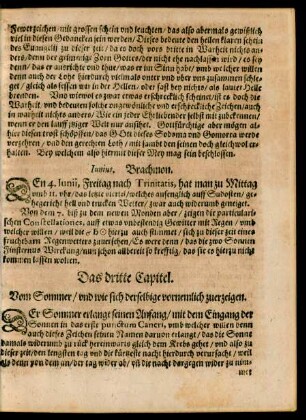 Fewerzeichen / mit grossen schein und leuchten / das also abermals gewißlich
viel in diesen Gedancken sein werden / Dieses bedeute den hellen klaren schein
des Euangelij zu dieser zeit / da es doch vors dritte in Warheit nichts an-
ders / denn der grimmige Zorn Gottes / der nicht ehe nachlassen wird / es sey
denn / das er ausrichte und thue / was er im Sinn habe / und welcher willen
denn auch der Lohe hierdurch vielmals unter und uber uns zusammen schle-
get / gleich als sessen wir in der Hellen / aber sagt das nichts / als lauter Helle
brenden. Und wiewol es zwar etwas erschrecklich scheinet / ist es doch die
Warheit / und bedeuten solche ungewönliche und erschreckliche Zeichen / auch
im warheit nichts anders / Wie ein jeder Christliebender selbst mit zubekennen /
wenn er den lauff itziger Welt nur ansihet. Gottfürchtige aber mögen als
hier diesen trost schöpffen / das Gott / ehe Sodoma und Gomorra werde
verzehren / und den gerechten Loth / mit sambt den seinen doch gleichwol er-
halten. Bey welchem also hiermit dieser May mag sein beschlossen.
Iunius, Brachmon.
DEn 4. Iunij, Freitag nach Trinitatis, hat man zu Mittag
umb 11. uhr / das letzte viertel / welches anfenglich auff Südosten / ge-
hegerecht hell und trucken Wetter / zwar auch widerumb geneiget.
Von dem 7. biß zu dem neuen Monden aber / zeigen die particulari-
schen Constellationes, auff etwas unbestendig Gewitter mit Regen / und
welcher willen / weil die ☍ ♄ ☉ hierzu auch stimmet / sich zu dieser zeit eines
fruchtbarn Regenwetters zuversehen / Es were denn / das die zwo Sonnen
Finsternus Wirckung / nun schon allbereit so krefftig / das sie es hierzu nicht
kommen lassen wolten.
Das dritte Capitel.
Vom Sommer / und wie sich derselbige vornemlich zuerzeigen.
DEr Sommer erlanget seinen Anfang / mit dem Eingang der
Sonnen in das erste punctum Cancri, umb welcher willen denn
auch dieses Zeichen seinen Namen darvon erlanget / das die Sonne
damals widerumb zu rück herein warts gleich dem Krebs gehet / und also zu
dieser zeit / den lengsten tag und die kürtzeste nacht hierdurch verursachet / weil
als denn von dem an / der tag wider ab / und die nacht dargegen wider zu nim-
met